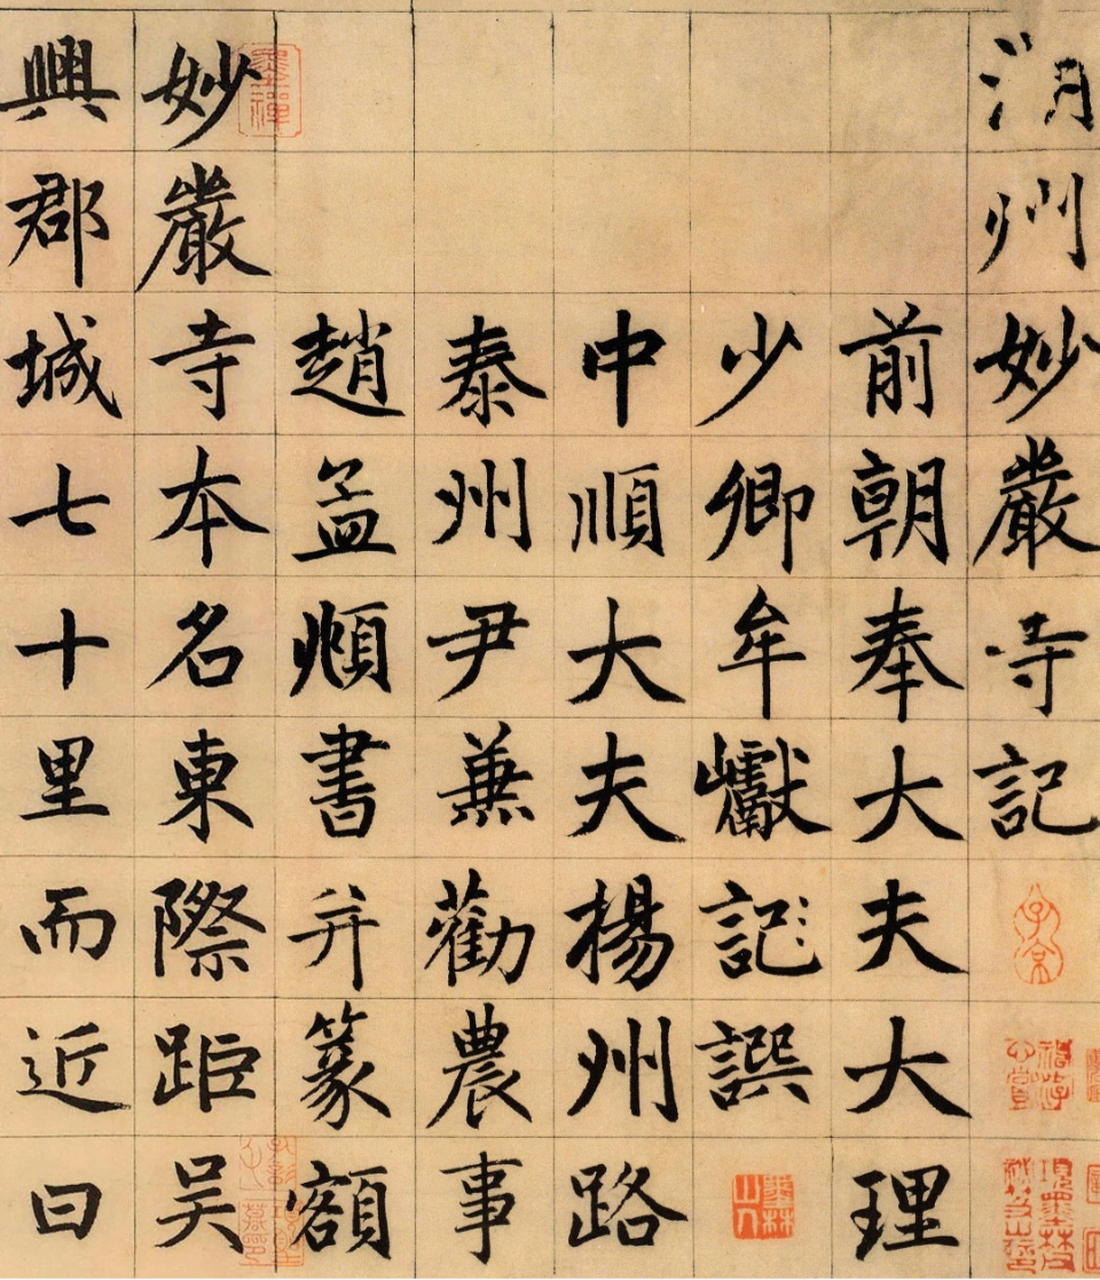 湖州妙嚴寺記
子京
前朝奉大夫大理
少卿牟巘記譔
墨林山人
中順大夫楊州路
泰州尹兼勸農事
趙孟頫書并篆額
妙嚴寺本名東際距吳
興郡城七十里而近曰